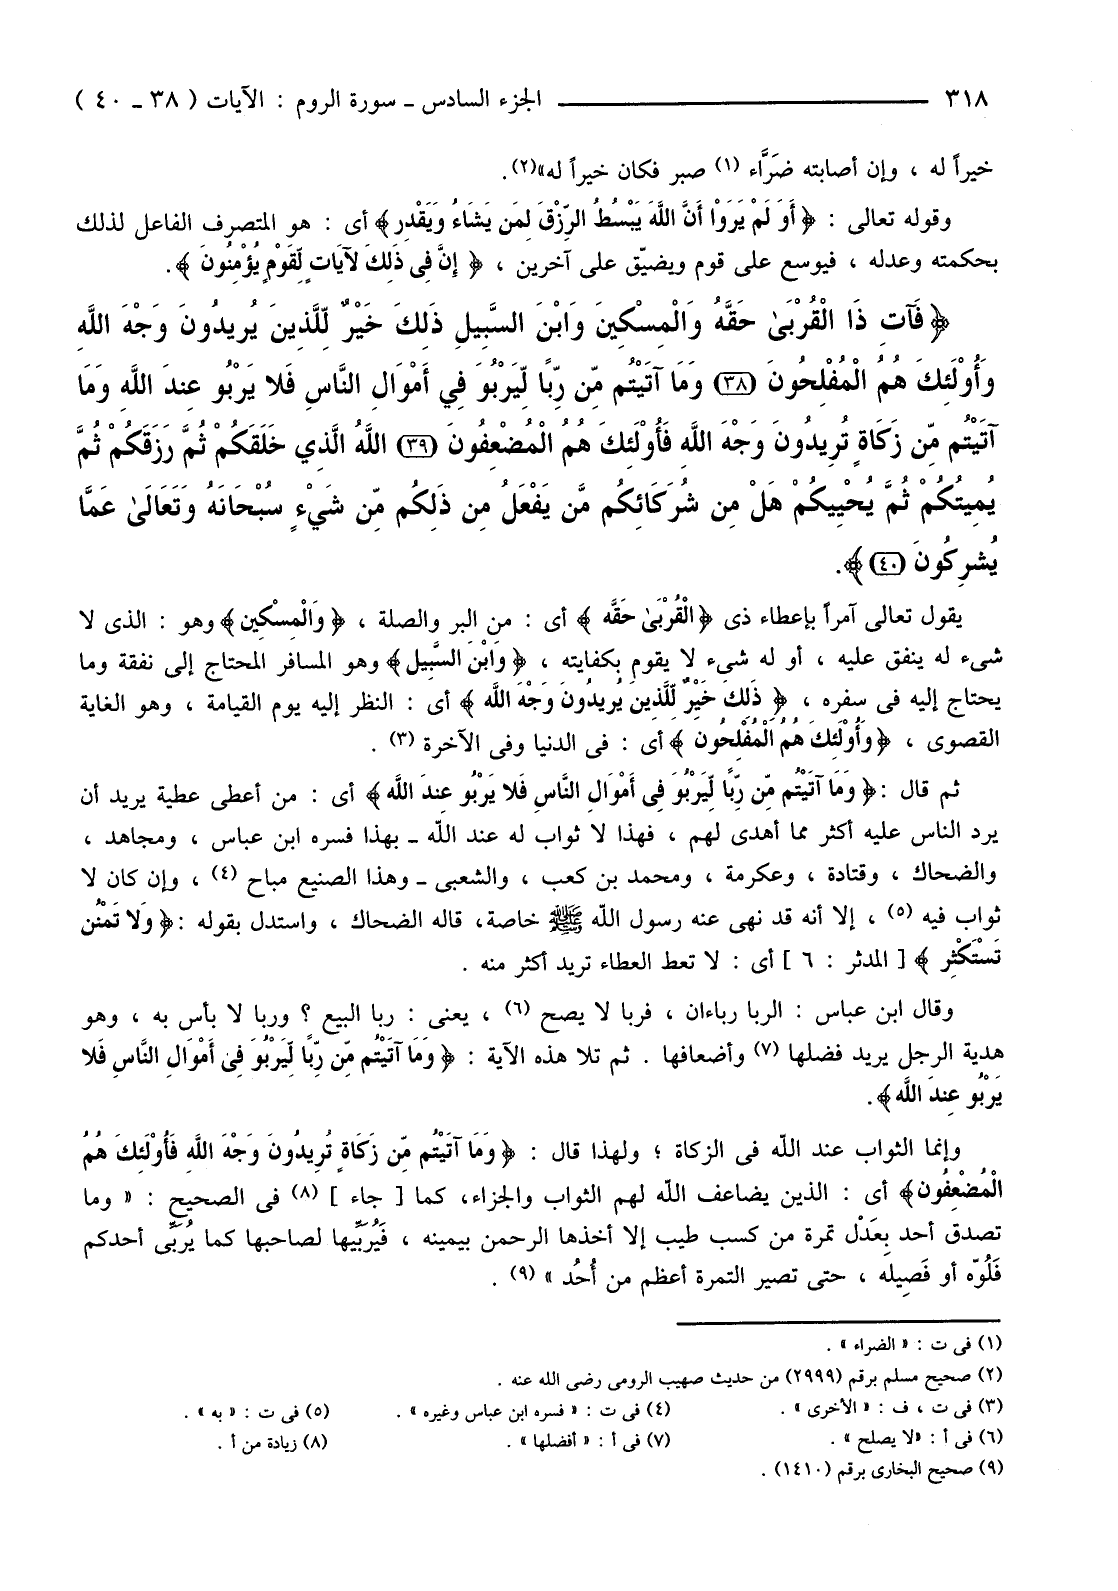 ٣١٨ ــــــــــــــــ الجزء السادس ـ سورة الروم : الآيات ( ٣٨ ـ ٤٠ )
خيراً له ، وإن أصابته ضَرَّاء (١) صبر فكان خيراً له»(٢).
وقوله تعالى : ﴿ أَوَ لَمْ يَرَوْا أَنَّ اللَّهَ يَبْسُطُ الرِّزْقَ لِمَن يَشَاءُ وَيَقْدِر﴾ أى : هو المتصرف الفاعل لذلك
بحكمته وعدله ، فيوسع على قوم ويضيّق على آخرين ، ﴿ إِنَّ فِي ذَلِكَ لآيَاتٍ لِّقَوْمٍ يُؤْمِنُونَ ﴾.
﴿ فَآتِ ذَا الْقُرْبَىٰ حَقَّهُ وَالْمِسْكِينَ وَابْنَ السَّبِيلِ ذَلِكَ خَيْرٌ لِّلَّذِينَ يُرِيدُونَ وَجْهَ اللَّهِ
وَأُوْلَئِكَ هُمُ الْمُفْلِحُونَ (٣٨) وَمَا آتَيْتُم مِّن رِّبًا لِّيَرْبُوَ فِي أَمْوَالِ النَّاسِ فَلا يَرْبُو عِندَ اللَّهِ وَمَا
آتَيْتُم مِّن زَكَاةٍ تُرِيدُونَ وَجْهَ اللَّهِ فَأُوْلَئِكَ هُمُ الْمُضْعِفُونَ (٣٩) اللَّهُ الَّذِي خَلَقَكُمْ ثُمَّ رَزَقَكُمْ ثُمَّ
يُمِيتُكُمْ ثُمَّ يُحْيِيكُمْ هَلْ مِن شُرَكَائِكُم مَّن يَفْعَلُ مِن ذَلِكُم مِّن شَيْءٍ سُبْحَانَهُ وَتَعَالَىٰ عَمَّا
يُشْرِكُونَ (٤٠) ﴾.
يقول تعالى آمراً بإعطاء ذى ﴿الْقُرْبَىٰ حَقَّه ﴾ أى : من البر والصلة ، ﴿ وَالْمِسْكِين﴾ وهو : الذى لا
شىء له ينفق عليه ، أو له شىء لا يقوم بكفايته ، ﴿ وَابْنَ السَّبِيل﴾ وهو المسافر المحتاج إلى نفقة وما
يحتاج إليه فى سفره ، ﴿ ذَلِكَ خَيْرٌ لِّلَّذِينَ يُرِيدُونَ وَجْهَ اللَّه ﴾ أى : النظر إليه يوم القيامة ، وهو الغاية
القصوى ، ﴿وَأُوْلَئِكَ هُمُ الْمُفْلِحُون ﴾ أى : فى الدنيا وفى الآخرة (٣) .
ثم قال :﴿ وَمَا آتَيْتُم مِّن رِّبًا لِّيَرْبُوَ فِي أَمْوَالِ النَّاسِ فَلا يَرْبُو عِندَ اللَّه﴾ أى : من أعطى عطية يريد أن
يرد الناس عليه أكثر مما أهدى لهم ، فهذا لا ثواب له عند الله ـ بهذا فسره ابن عباس ، ومجاهد ،
والضحاك ، وقتادة ، وعكرمة ، ومحمد بن كعب ، والشعبى ـ وهذا الصنيع مباح (٤) ، وإن كان لا
ثواب فيه (٥) ، إلا أنه قد نهى عنه رسول الله ﷺ خاصة، قاله الضحاك ، واستدل بقوله :﴿ وَلا تَمْنُن
تَسْتَكْثِر ﴾ [ المدثر : ٦ ] أى : لا تعط العطاء تريد أكثر منه .
وقال ابن عباس : الربا رباءان ، فربا لا يصح (٦) ، يعنى : ربا البيع ؟ وربا لا بأس به ، وهو
هدية الرجل يريد فضلها (٧) وأضعافها . ثم تلا هذه الآية : ﴿ وَمَا آتَيْتُم مِّن رِّبًا لِّيَرْبُوَ فِي أَمْوَالِ النَّاسِ فَلا
يَرْبُو عِندَ اللَّه﴾.
وإنما الثواب عند الله فى الزكاة ؛ ولهذا قال : ﴿ وَمَا آتَيْتُم مِّن زَكَاةٍ تُرِيدُونَ وَجْهَ اللَّهِ فَأُوْلَئِكَ هُمُ
الْمُضْعِفُون﴾ أى : الذين يضاعف الله لهم الثواب والجزاء، كما [ جاء ] (٨) فى الصحيح : « وما
تصدق أحد بِعَدْل تمرة من كسب طيب إلا أخذها الرحمن بيمينه ، فَيُرَبِّيها لصاحبها كما يُرَبِّى أحدكم
فَلُوّه أو فَصِيله ، حتى تصير التمرة أعظم من أُحُد » (٩) .
(١) فى ت : « الضراء » .
(٢) صحيح مسلم برقم (٢٩٩٩) من حديث صهيب الرومى رضى الله عنه .
(٣) فى ت ، ف : « الأخرى » . (٤) فى ت : « فسره ابن عباس وغيره » . (٥) فى ت : « به » .
(٦) فى أ : «لا يصلح » . (٧) فى أ : « أفضلها » . (٨) زيادة من أ .
(٩) صحيح البخارى برقم (١٤١٠) .